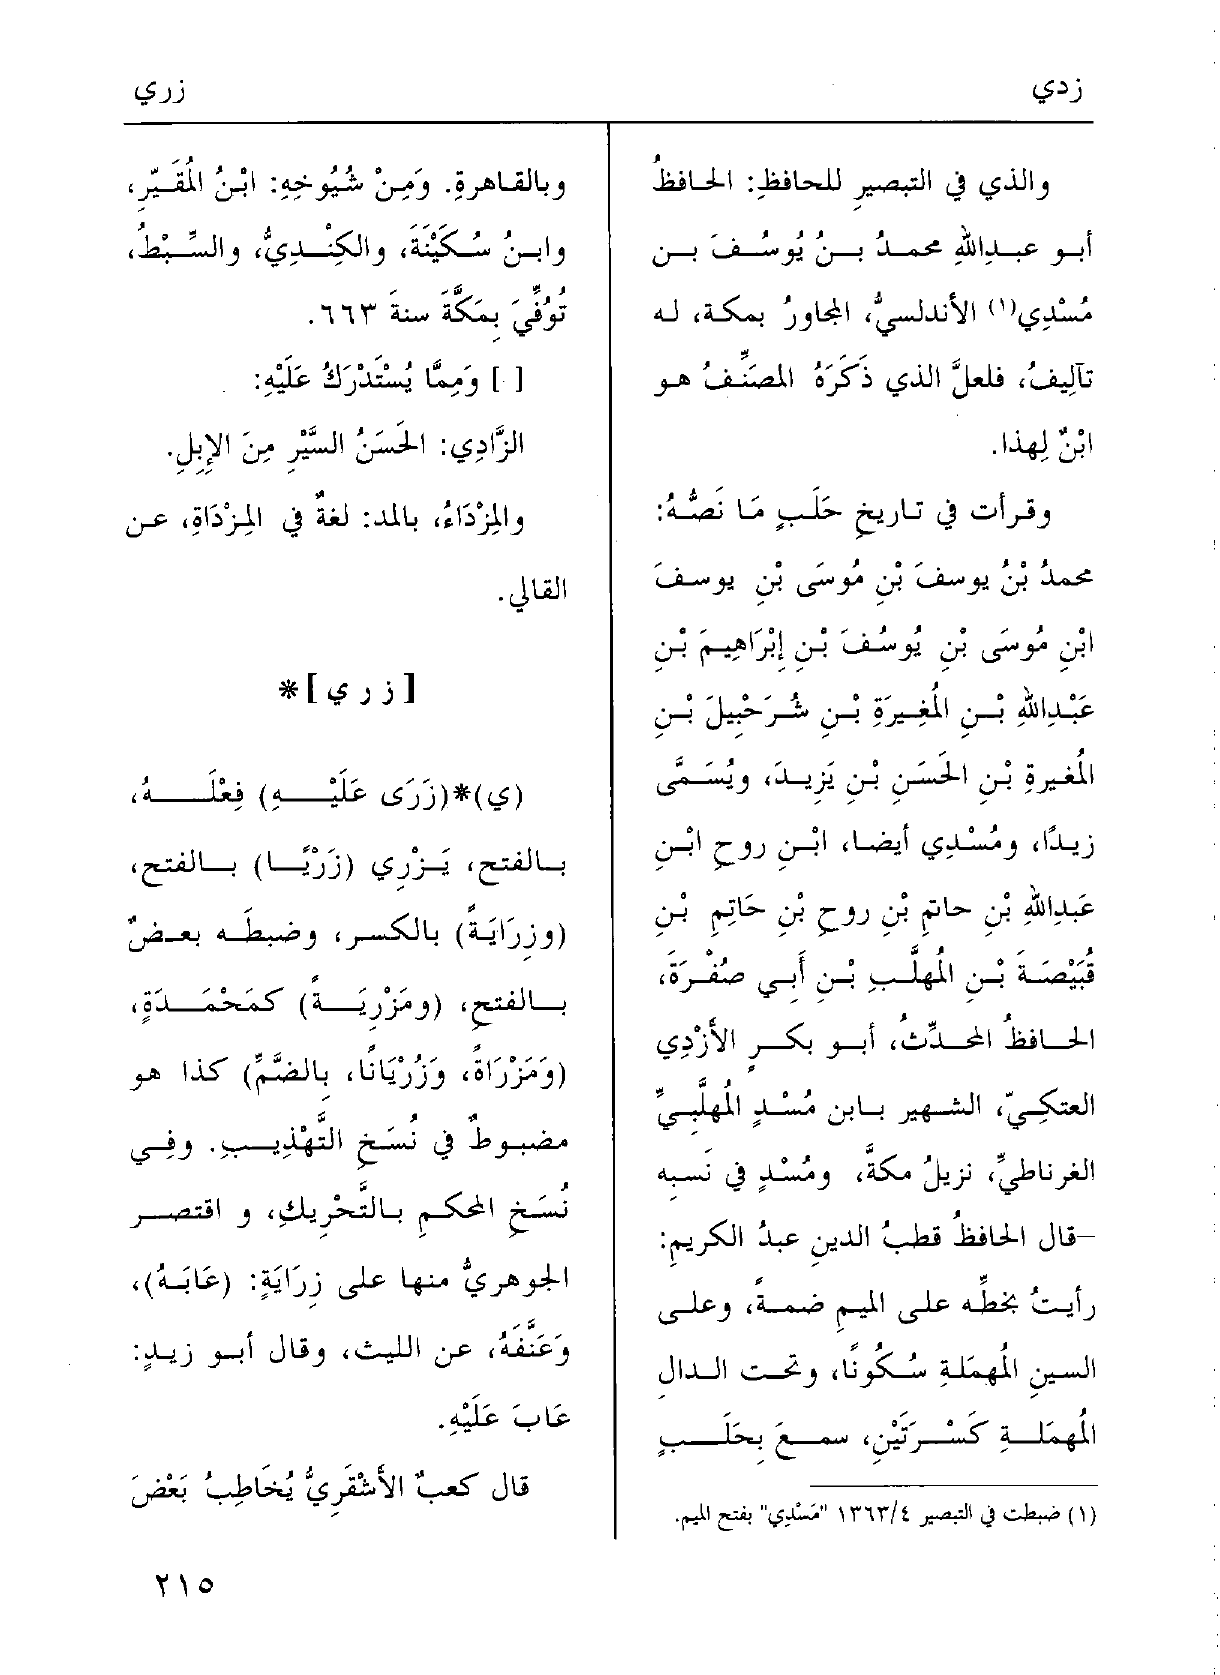 زدي
زري
والذي في التبصيرِ للحافظِ: الحافظُ
أبو عبدِاللهِ محمدُ بنُ يُوسُفَ بن
مُسْدِي(١) الأندلسيُّ، المجاورُ بمكة، له
تآلِيفُ، فلعلَّ الذي ذَكَرَهُ المصَنِّفُ هو
ابْنٌ لِهذا.
وقرأت في تاريخِ حَلَبٍ مَا نَصُّهُ:
محمدُ بْنُ يوسفَ بْنِ مُوسَى بْنِ يوسفَ
ابْنِ مُوسَى بْنِ يُوسُفَ بْنِ إبْرَاهِيمَ بْنِ
عَبْدِاللهِ بْنِ المُغِيرَةِ بْنِ شُرَحْبِيلَ بْنِ
المُغيرةِ بْنِ الحَسَنِ بْنِ يَزِيدَ، ويُسَمَّى
زيدًا، ومُسْدِي أيضا، ابْنِ روحِ ابْنِ
عَبدِاللهِ بْنِ حاتمِ بْنِ روحِ بْنِ حَاتِمِ بْنِ
قُبَيْصَةَ بْنِ المُهلَّبِ بْنِ أَبِي صُفْرَةَ،
الحافظُ المحدِّثُ، أبو بكرٍ الأزْدِي
العتكِيّ، الشهير بابن مُسْدٍ المُهلَّبيِّ
الغرناطيِّ، نزيلُ مكةَّ، ومُسْدٍ في نَسبِه
–قال الحافظُ قطبُ الدينِ عبدُ الكريمِ:
رأيتُ بخطِّه على الميمِ ضمةً، وعلى
السينِ المُهمَلةِ سُكُونًا، وتحت الدالِ
المُهمَلةِ كَسْرَتَيْنِ، سمعَ بِحَلَبٍ
(١) ضبطت في التبصير ١٣٦٣/٤ "مَسْدِي" بفتح الميم.
وبالقاهرةِ. وَمِنْ شُيُوخِهِ: ابْنُ المُقَيِّرِ،
وابنُ سُكَيْنَةَ، والكِنْدِيُّ، والسِّبْطُ،
تُوُفِّيَ بِمَكَّةَ سنةَ ٦٦٣.
[ ] وَمِمَّا يُسْتَدْرَكُ عَلَيْهِ:
الزَّادِي: الحَسَنُ السَّيْرِ مِنَ الإبِلِ.
والمِزْدَاءُ، بالمد: لغةٌ في المِزْدَاةِ، عن
القالي.
[ز ر ي]*
(ي)*(زَرَى عَلَيْهِ) فِعْلَهُ،
بالفتحِ، يَزْرِي (زَرْيًا) بالفتح،
(وزِرَايَةً) بالكسرِ، وضبطَه بعضٌ
بالفتحِ، (ومَزْرِيَةً) كمَحْمَدَةٍ،
(وَمَزْرَاةً، وَزُرْيَانًا، بِالضَّمِّ) كذا هو
مضبوطٌ في نُسَخِ التَّهْذِيبِ. وفِي
نُسَخِ المحكمِ بالتَّحْرِيكِ، و اقتصر
الجوهريُّ منها على زِرَايَةٍ: (عَابَهُ)،
وَعَنَّفَهُ، عن الليث، وقال أبو زيدٍ:
عَابَ عَلَيْهِ.
قال كعبٌ الأشْقَرِيُّ يُخَاطِبُ بَعْضَ
٢١٥